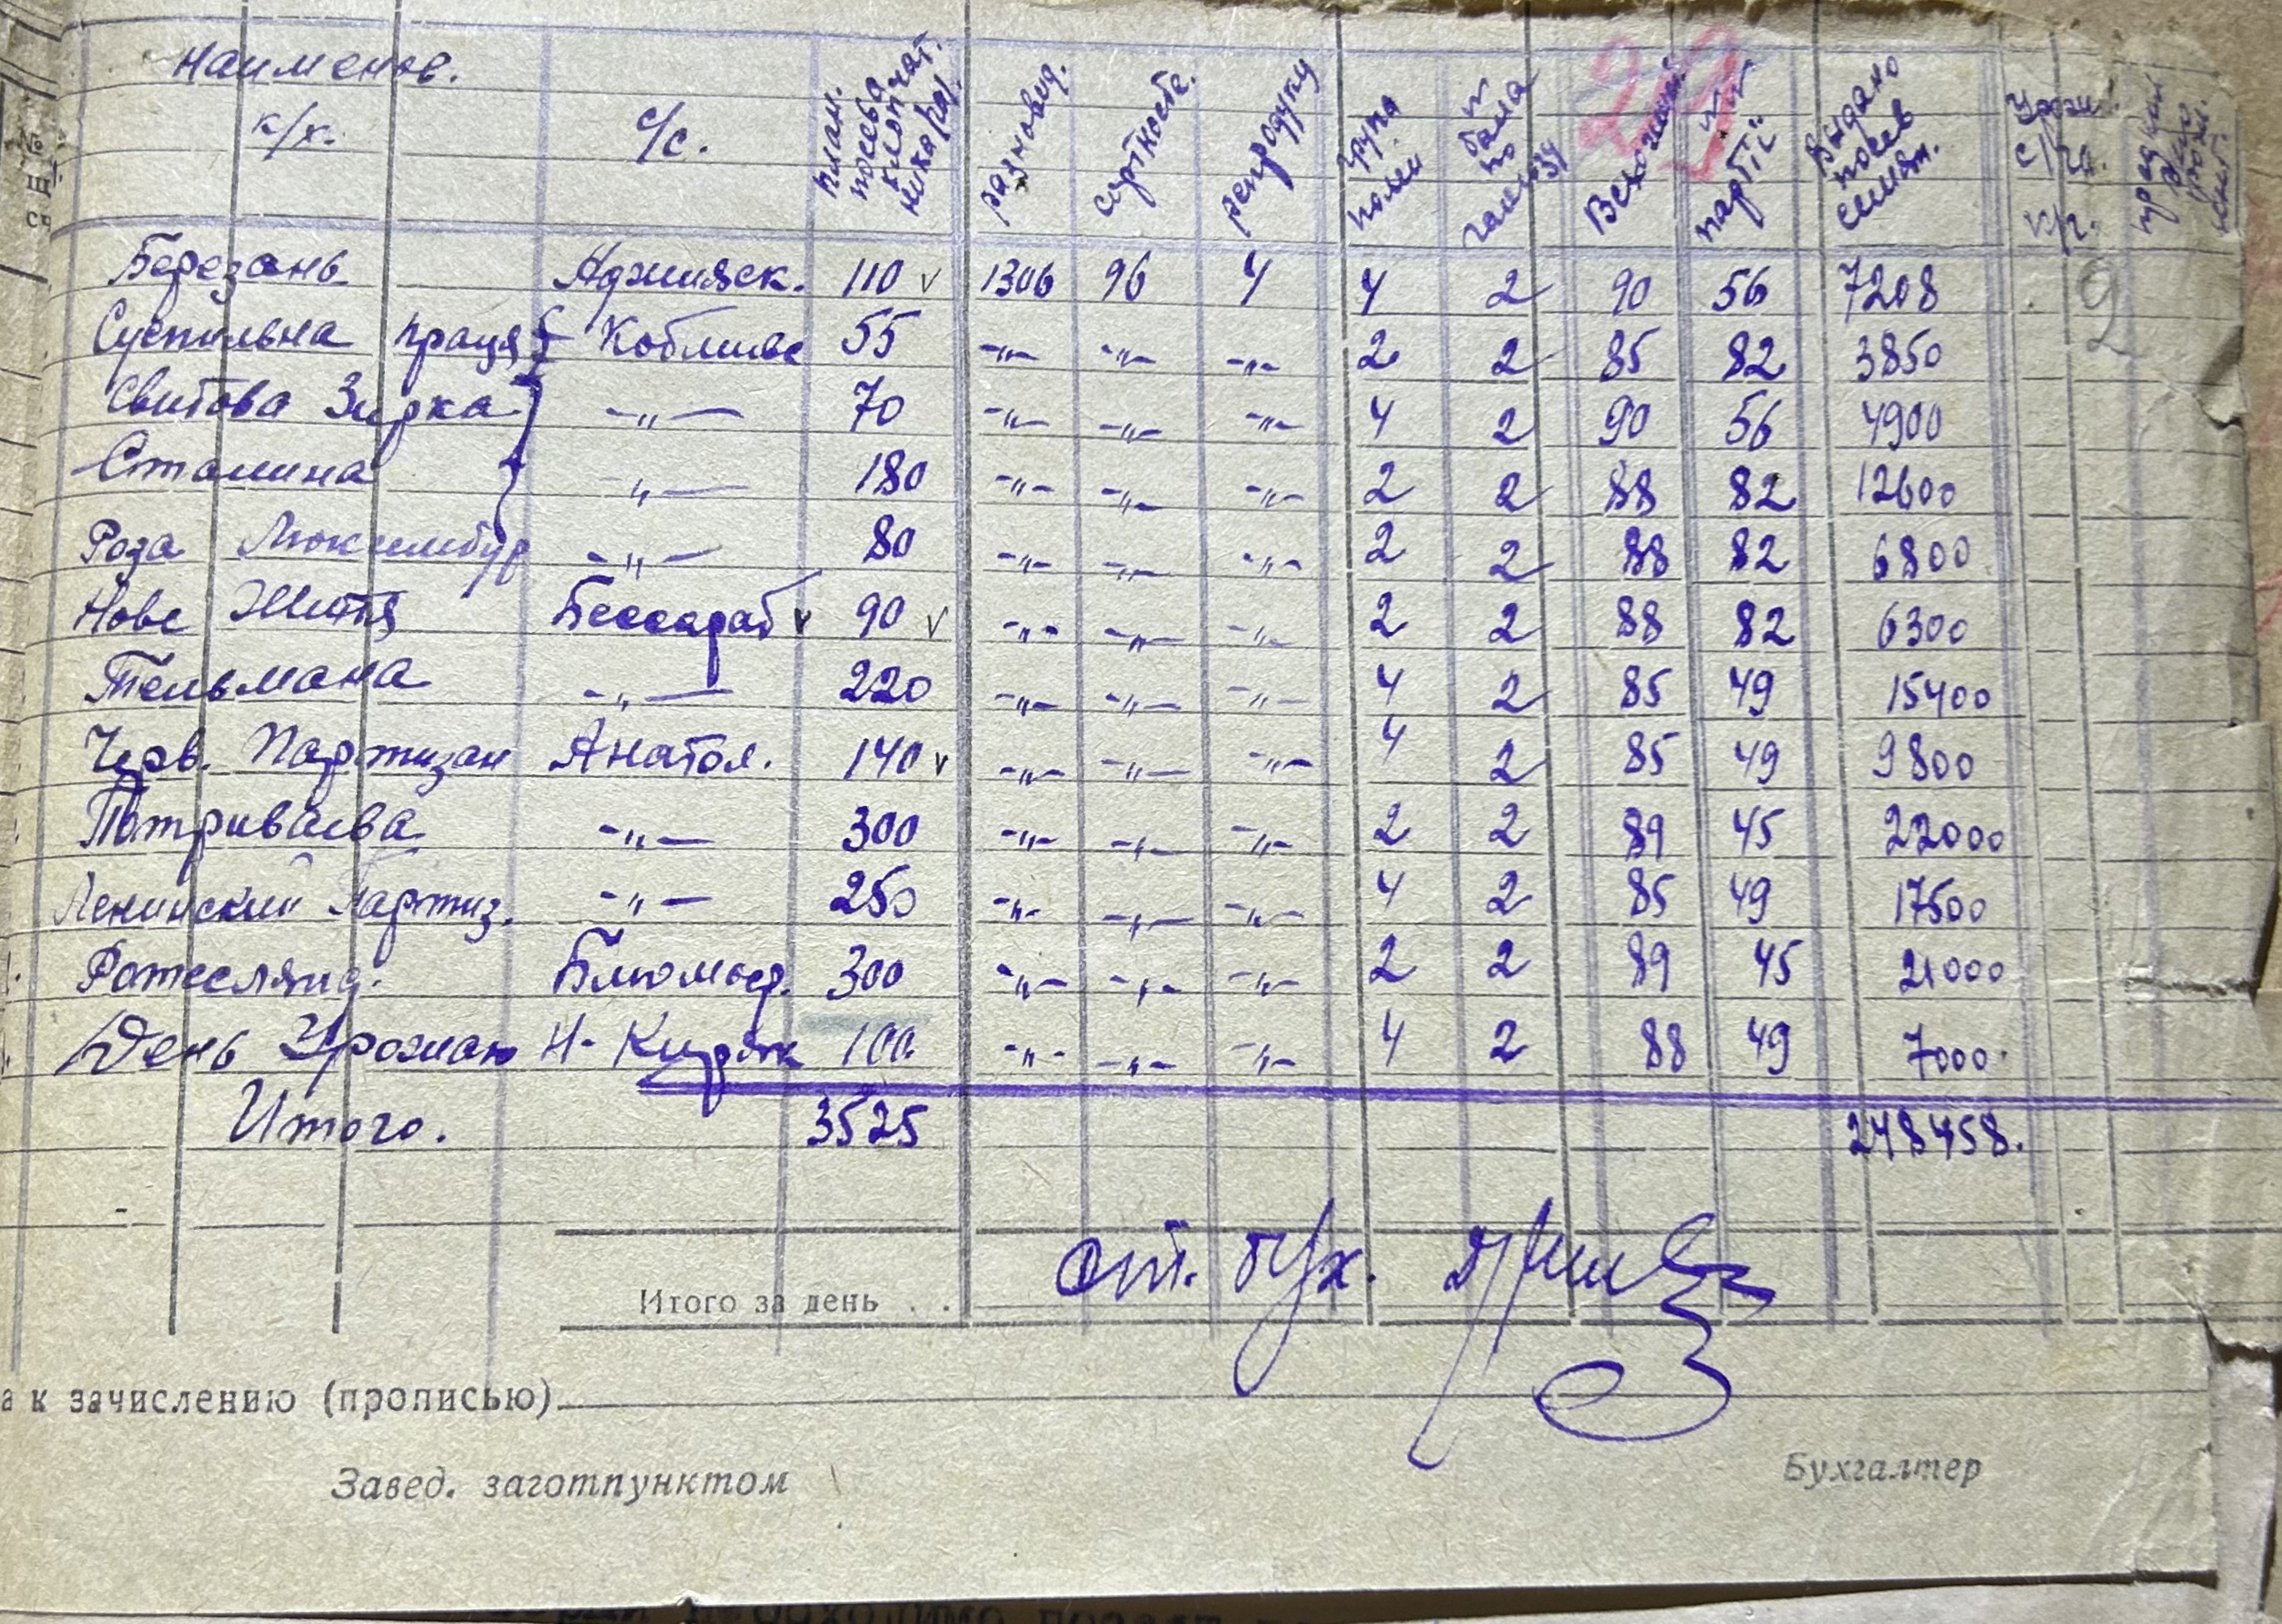 29
Наименов. к/х. с/с. план. посева хлопчат. ника /га/. разновид. сортность. репродукц група полей Всхожест. № партii Выдано посев семян. Урож. с/га.
Березань Аджияск. 110 v 1306 96 4 4 2 90 56 7208
Суспильна праця Коблиевс 55 -"- -"- -"- 2 2 85 82 3850
Свитова Зирка -"- 70 -"- -"- -"- 4 2 90 56 4900
Сталина -"- 180 -"- -"- -"- 2 2 88 82 12600
Роза Люксембур -"- 80 -"- -"- -"- 2 2 88 82 6800
Нове Життя Бессараб v 90 v -"- -"- -"- 2 2 88 82 6300
Тельмана -"- 220 -"- -"- -"- 4 2 85 49 15400
Черв. Партизан Анатол. 140 v -"- -"- -"- 4 2 85 49 9800
Патриваева -"- 300 -"- -"- -"- 2 2 89 45 22000
Ленинский Партиз. -"- 250 -"- -"- -"- 4 2 85 49 17500
Ротеслянд. Блюменф. 300 -"- -"- -"- 2 2 89 45 21000
День Урожаю Н-Куряк 100 -"- -"- -"- 4 2 88 49 7000.
Итого. 3525 248458.
ст. бух.
Итого за день . .
а к зачислению (прописью)
Завед. заготпунктом Бухгалтер